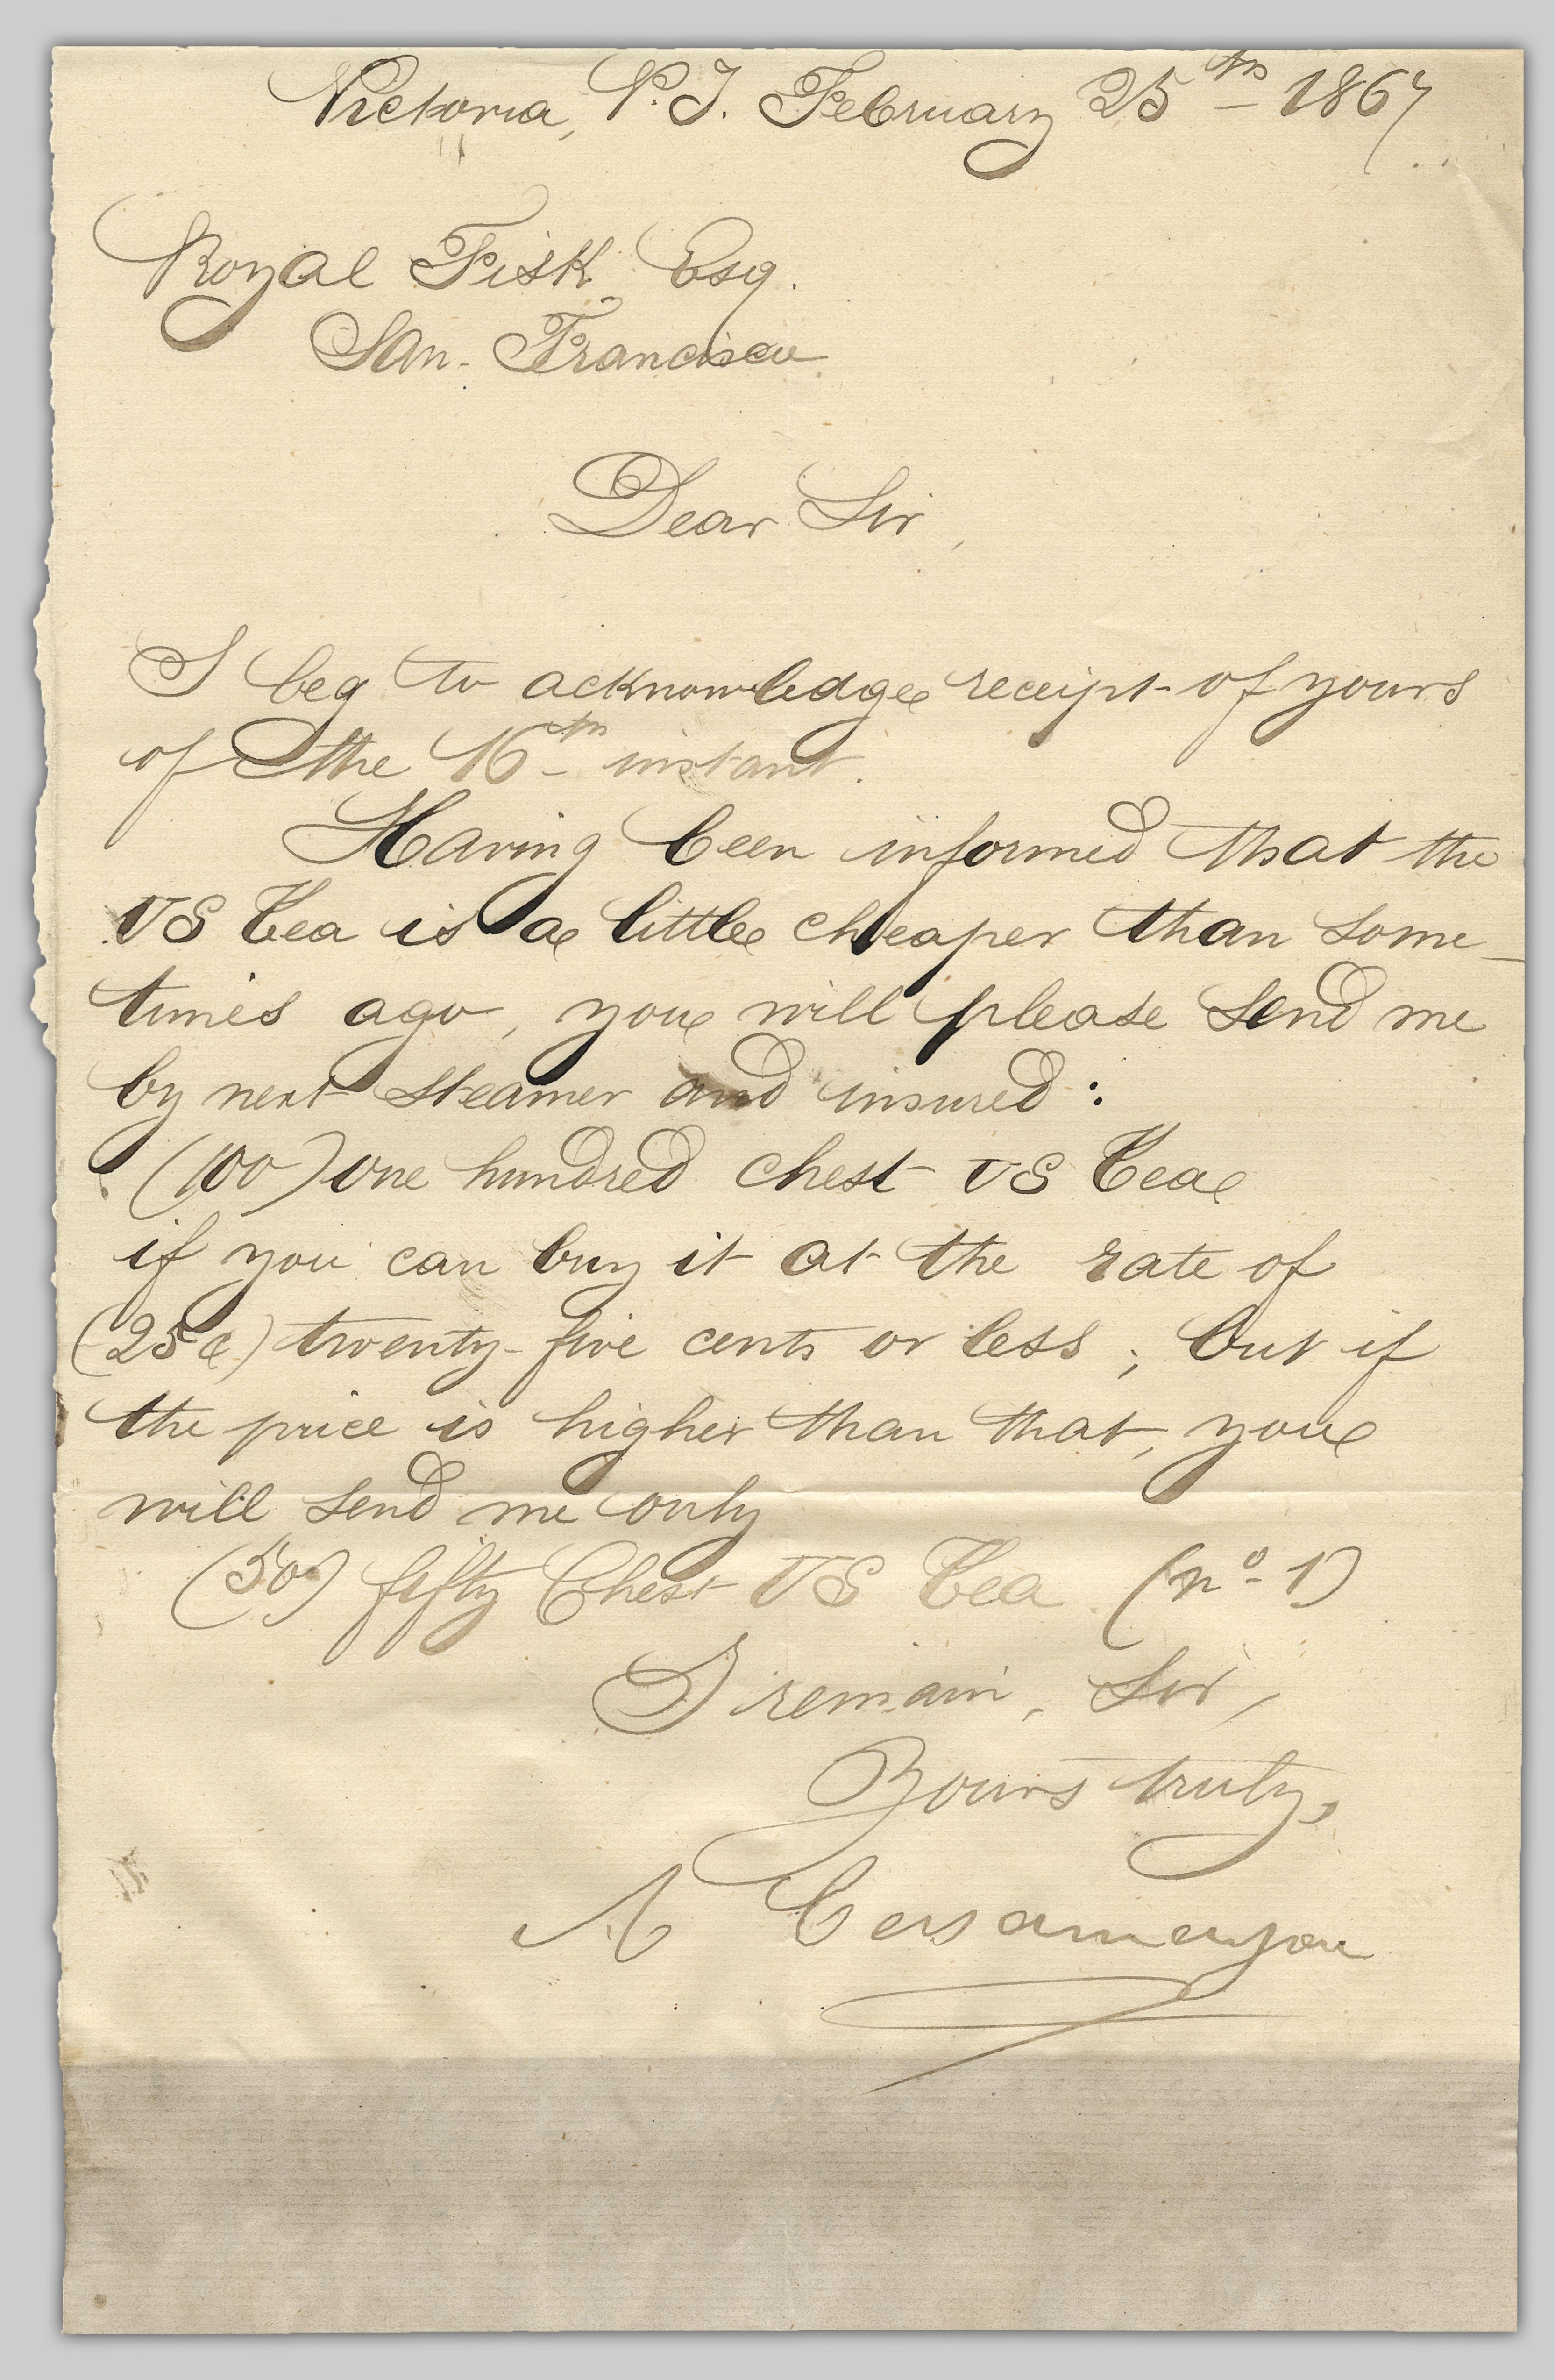 Victoria, V.I. February 25th 1867
Royal Fisk Esq.
San-Francisco
Dear Sir,
I beg to acknowledge receipt of yours
of the 16th instant.
Having been informed that the
VS Tea is a little cheaper than some-
times ago, you will please send me
by next steamer and insured:
(100) one hundred chest VS Tea
if you can buy it at the rate of
(25c) twenty-five cents or less; but if
the price is higher than that, you
will send me only
(50) fifty Chest VS Tea. (no 1)
I remain, Sir,
Yours truly,
A